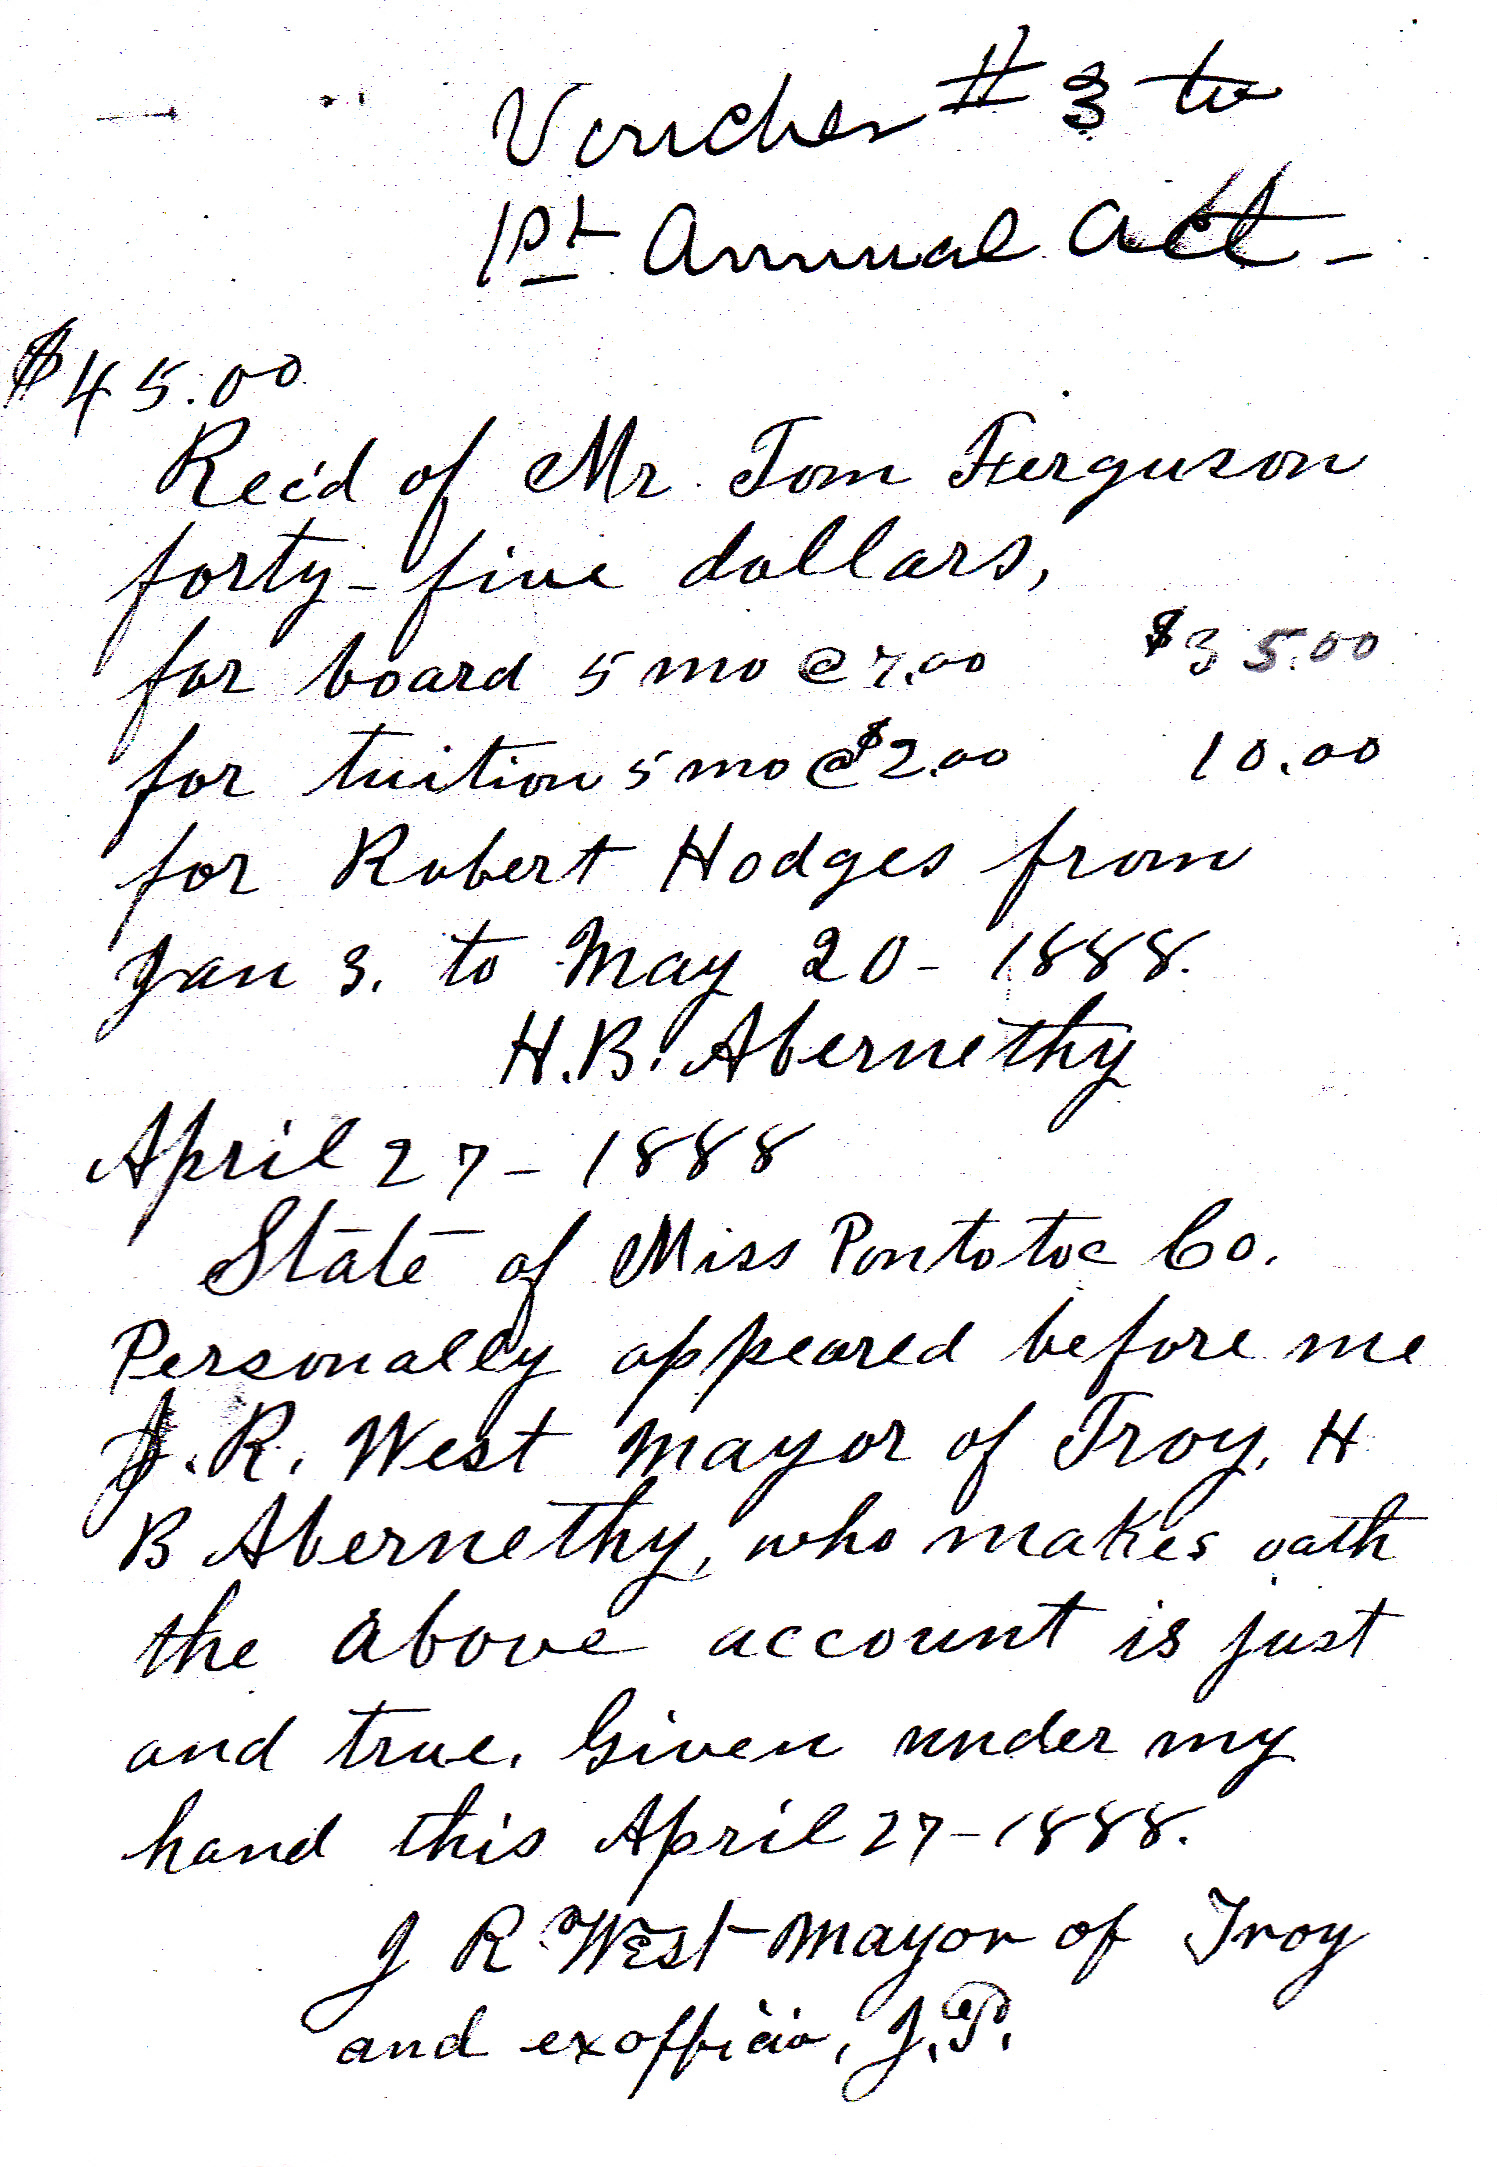 Voucher # 3 to
1st Annual Act -
$45.00
Rec'd of Mr. Tom Ferguson
forty-five dollars,
for board 5 mo @ 7.00 $35.00
for tuition 5 mo @ $2.00 10.00
for Robert Hodges from
Jan 3. to May 20 - 1888.
H. B. Abernethy
April 27 - 1888
State of Miss Pontotoc Co.
Personally appeared before me
J. R. West Mayor of Troy, H
B Abernethy, who makes oath
the above account is just
and true. Given under my
hand this April 27 - 1888.
J R West Mayor of Troy
and exofficio, J.P.